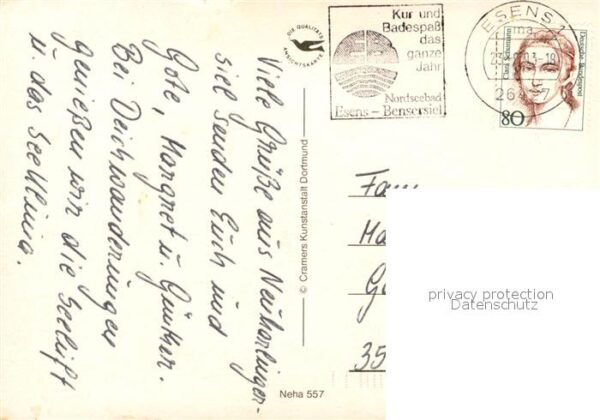 Viele Grüße aus Neuharlinger-
siel senden Euch und
Gote, Margret u. Günther.
Bei Deichwanderungen
genießen wir die Seeluft
u. das Seeklima.
DIE QUALITÄTS
ANSICHTSKARTE
© Cramers Kunstanstalt Dortmund
Neha 557
Kur und
Badespaß
das
ganze
Jahr
Nordseebad
Esens – Bensersiel
ESENS
Clara Schumann
Deutsche Bundespost
80
Fam
Ha
35
privacy protection
Datenschutz